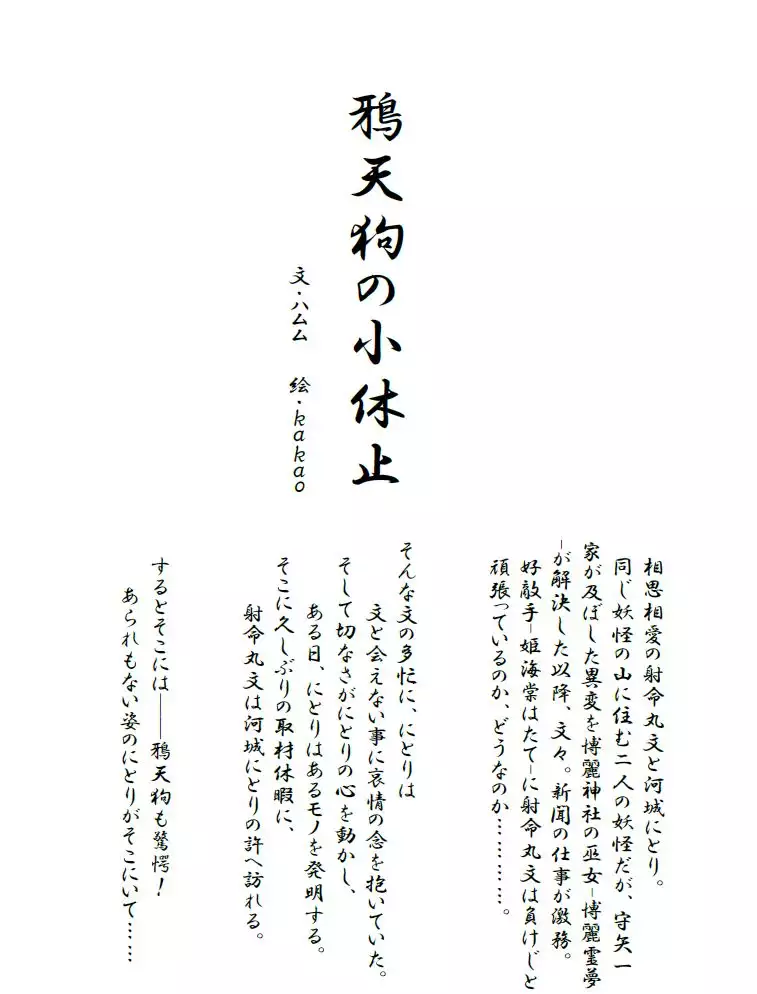 鴉天狗の小休止
文・ハムム　絵・kakao
相思相愛の射命丸文と河城にとり。
同じ妖怪の山に住む二人の妖怪だが、守矢一
家が及ぼした異変を博麗神社の巫女−博麗霊夢
−が解決した以降、文々。新聞の仕事が激務。
好敵手−姫海棠はたて−に射命丸文は負けじと
頑張っているのか、どうなのか…………。
そんな文の多忙に、にとりは
文と会えない事に哀情の念を抱いていた。
そして切なさがにとりの心を動かし、
ある日、にとりはあるモノを発明する。
そこに久しぶりの取材休暇に、
射命丸文は河城にとりの許へ訪れる。
するとそこには――鴉天狗も驚愕！
あられもない姿のにとりがそこにいて……